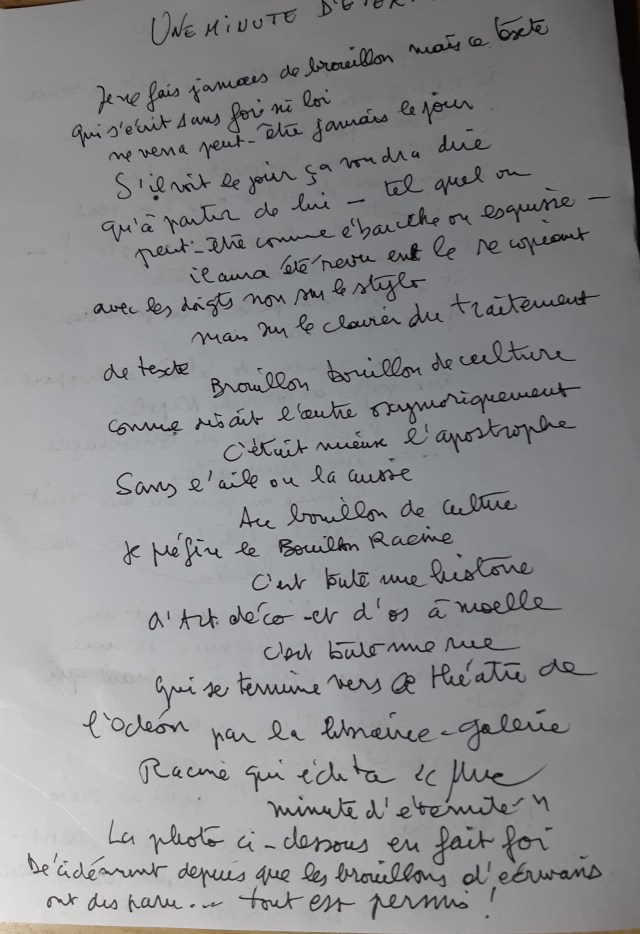 UNE MINUTE D'ETER
Je ne fais jamais de brouillon mais ce texte
qui s'écrit sans foi ni loi
ne verra peut-être jamais le jour
S'il voit le jour ça voudra dire
qu'à partir de lui - tel quel ou
peut-être comme ébauche ou esquisse -
il aura été revu en le recopiant
avec les doigts non sur le stylo
mais sur le clavier du traitement
de texte
Brouillon bouillon de culture
comme disait l'autre oxymoriquement
C'était mieux l'apostrophe
Sans l'aile ou la cuisse
Au bouillon de culture
Je préfère le Bouillon Racine
C'est toute une histoire
d'Art déco et d'os à moelle
c'est toute une rue
qui se termine vers le théâtre de
l'Odéon par la librairie-galerie
Racine qui édita "Une
minute d'éternité"
La photo ci-dessous en fait foi
Décidément depuis que les brouillons d'écrivains
ont disparu... tout est permis !